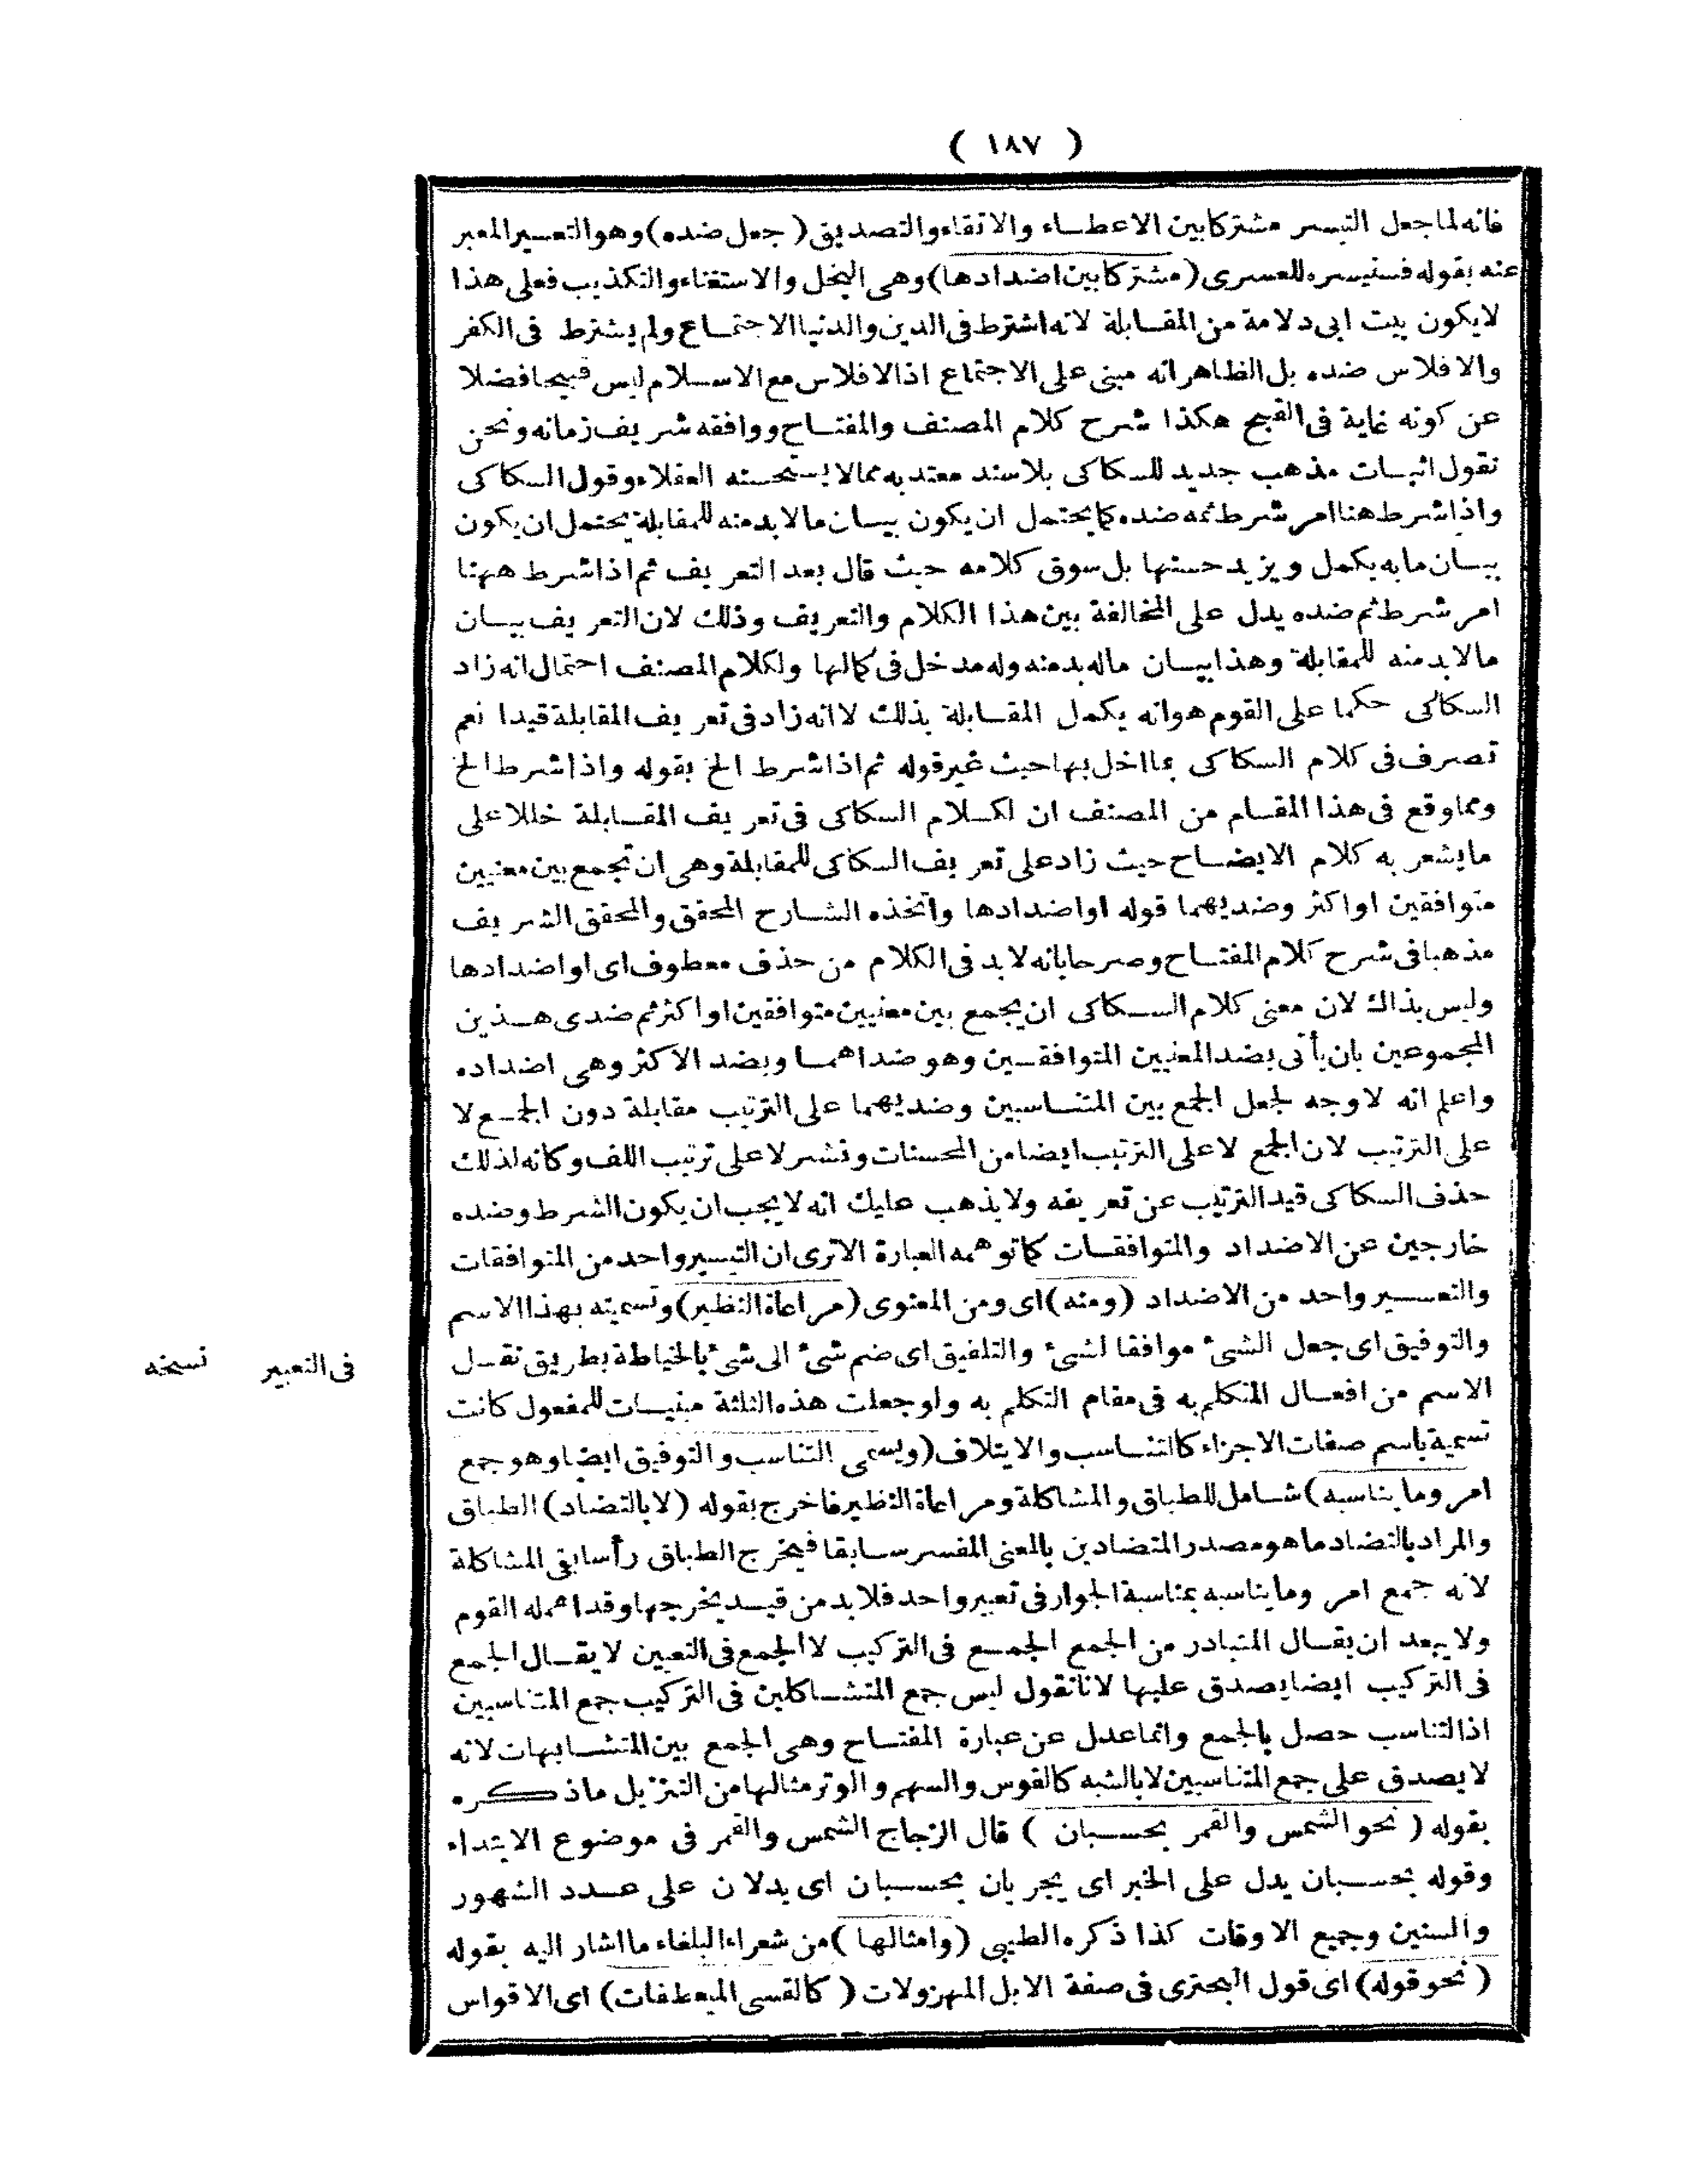 ( ١٨٧ )
فانه لما جعل التيسر مشتركا بين الاعطاء والاتقاء والتصديق ( جعل ضده ) وهو التعسير المعبر
عنه بقوله فسنيسره للعسرى ( مشتركا بين اضدادها ) وهى البخل والاستغناء والتكذيب فعلى هذا
لايكون بيت ابى دلامة من المقابلة لانه اشترط فى الدين والدنيا الاجتماع ولم يشترط فى الكفر
والافلاس ضده بل الظاهر انه مبنى على الاجتماع اذ الافلاس مع الاسلام ليس قبيحا فضلا
عن كونه غاية فى القبح هكذا شرح كلام المصنف والمفتاح ووافقه شريف زمانه ونحن
نقول اثبات مذهب جديد للسكاكى بلا سند معتد به مما لا يستحسنه العقلاء وقول السكاكى
واذا شرط هنا امر شرط ثمه ضده كما يحتمل ان يكون بيان ما لابد منه للمقابلة يحتمل ان يكون
بيان ما به يكمل ويزيد حسنها بل سوق كلامه حيث قال بعد التعريف ثم اذا شرط ههنا
امر شرط ثم ضده يدل على المخالفة بين هذا الكلام والتعريف وذلك لان التعريف بيان
ما لابد منه للمقابلة وهذا بيان ماله بد منه وله مدخل فى كمالها ولكلام المصنف احتمال انه زاد
السكاكى حكما على القوم هو انه يكمل المقابلة بذلك لا انه زاد فى تعريف المقابلة قيدا نعم
تصرف فى كلام السكاكى بما اخل بها حيث غير قوله ثم اذا شرط الخ بقوله واذا شرط الخ
ومما وقع فى هذا المقام من المصنف ان لكلام السكاكى فى تعريف المقابلة خللا على
ما يشعر به كلام الايضاح حيث زاد على تعريف السكاكى للمقابلة وهى ان تجمع بين معنيين
متوافقين او اكثر وضديهما قوله او اضدادها واتخذه الشارح المحقق والمحقق الشريف
مذهبا فى شرح كلام المفتاح وصرحا بانه لابد فى الكلام من حذف معطوف اى او اضدادها
وليس بذاك لان معنى كلام السكاكى ان يجمع بين معنيين متوافقين او اكثر ثم ضدى هذين
المجموعين بان يأتى بضد المعنيين المتوافقين وهو ضداهما وبضد الاكثر وهى اضداده
واعلم انه لا وجه لجعل الجمع بين المتناسبين وضديهما على الترتيب مقابلة دون الجمع لا
على الترتيب لان الجمع لا على الترتيب ايضا من المحسنات ونشر لا على ترتيب اللف وكانه لذلك
حذف السكاكى قيد الترتيب عن تعريفه ولا يذهب عليك انه لا يجب ان يكون الشرط وضده
خارجين عن الاضداد والمتوافقات كما توهمه العبارة الاترى ان التيسير واحد من المتوافقات
والتعسير واحد من الاضداد ( ومنه ) اى ومن المعنوى ( مراعاة النظير ) وتسميته بهذا الاسم
والتوفيق اى جعل الشئ موافقا لشئ والتلفيق اى ضم شئ الى شئ بالخياطة بطريق نقل
الاسم من افعال المتكلم به فى مقام التكلم به ولو جعلت هذه الثلثة مبنيات للمفعول كانت
تسمية باسم صفات الاجزاء كالتناسب والايتلاف ( ويسمى التناسب والتوفيق ايضا وهو جمع
امر وما يناسبه ) شامل للطباق والمشاكلة ومراعاة النظير فاخرج بقوله ( لا بالتضاد ) الطباق
والمراد بالتضاد ما هو مصدر المتضادين بالمعنى المفسر سابقا فيخرج الطباق رأسا بقى المشاكلة
لانه جمع امر وما يناسبه بمناسبة الجوار فى تعبير واحد فلابد من قيد يخرجها وقد اهمله القوم
ولا يبعد ان يقال المتبادر من الجمع الجمع فى التركيب لا الجمع فى التعيين لا يقال الجمع
فى التركيب ايضا يصدق عليها لانا نقول ليس جمع المتشاكلين فى التركيب جمع المتناسبين
اذ التناسب حصل بالجمع وانما عدل عن عبارة المفتاح وهى الجمع بين المتشابهات لانه
لا يصدق على جمع المتناسبين لا بالشبه كالقوس والسهم والوتر مثالها من التنزيل ما ذكره
بقوله ( نحو الشمس والقمر بحسبان ) قال الزجاج الشمس والقمر فى موضوع الابتداء
وقوله بحسبان يدل على الخبر اى يجريان بحسبان اى يدلان على عدد الشهور
والسنين وجميع الاوقات كذا ذكره الطيبى ( وامثالها ) من شعراء البلغاء ما اشار اليه بقوله
( نحو قوله ) اى قول البحترى فى صفة الابل المهزولات ( كالقسى المعطفات ) اى الاقواس
فى التعبير نسخه